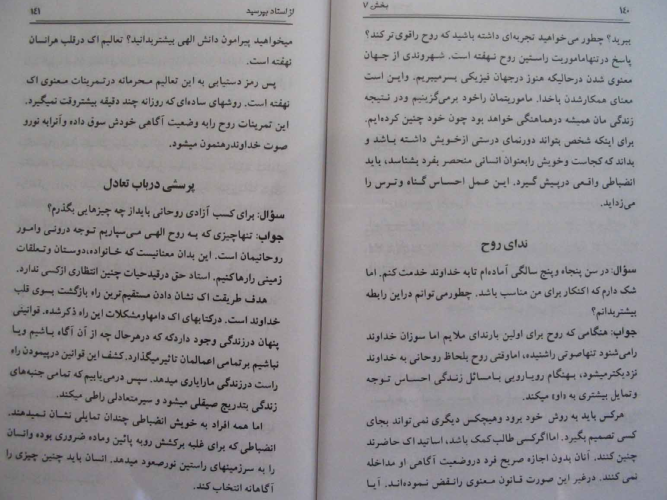 ۱۴۰
بخش ۷
ببرید؟ چطور می‌خواهید تجربه‌ای داشته باشید که روح راقوی‌تر کند؟
پاسخ درتنهاماموریت راستین روح نهفته است. شهروندی از جهان
معنوی شدن درحالیکه هنوز درجهان فیزیکی بسرمیبریم. واین است
معنای همکارشدن باخدا. ماموریتمان راخود برمی‌گزینیم ودر نتیجه
زندگی مان همیشه درهماهنگی خواهد بود چون خود چنین کرده‌ایم.
برای اینکه شخص بتواند دورنمای درستی ازخویش داشته باشد و
بداند که کجاست وخویش رابعنوان انسانی منحصر بفرد بشناسد، باید
انضباطی واقعی درپیش گیرد. این عمل احساس گناه وترس را
می‌زداید.
ندای روح
سؤال: در سن پنجاه وپنج سالگی آماده‌ام تابه خداوند خدمت کنم. اما
شک دارم که اکنکار برای من مناسب باشد. چطورمی‌توانم دراین رابطه
بیشتربدانم؟
جواب: هنگامی که روح برای اولین بارندای ملایم اما سوزان خداوند
رامی‌شنود تنهاصوتی راشنیده، اماوقتی روح بلحاظ روحانی به خداوند
نزدیکترمیشود، بهنگام رویارویی بامسائل زندگی احساس توجه
وتمایل بیشتری به «او» میکند.
هرکس باید به روش خود برود وهیچکس دیگری نمی‌تواند بجای
کسی تصمیم بگیرد. اماآگرکسی طالب کمک باشد، اساتید اک حاضرند
چنین کنند. آنان بدون اجازه صریح فرد دروضعیت آگاهی او مداخله
نمی کنند. درغیر این صورت قانون معنوی رانقض نموده‌اند. آیا
از استاد بپرسید
۱۴۱
میخواهید پیرامون دانش الهی بیشتربدانید؟ تعالیم اک درقلب هرانسان
نهفته است.
پس رمز دستیابی به این تعالیم محرمانه درتمرینات معنوی اک
نهفته است. روشهای ساده‌ای که روزانه چند دقیقه بیشتروقت نمیگیرد.
این تمرینات روح رابه وضعیت آگاهی خودش سوق داده وآنرابه نورو
صوت خداوندرهنمون میشود.
پرسشی درباب تعادل
سؤال: برای کسب آزادی روحانی بایداز چه چیزهایی بگذرم؟
جواب: تنهاچیزی که به روح الهی می‌سپاریم توجه درونی وامور
روحانیمان است. این بدان معنانیست که خانواده،دوستان وتعلقات
زمینی رارهاکنیم. استاد حق درقیدحیات چنین انتظاری ازکسی ندارد.
هدف طریقت اک نشان دادن مستقیم‌ترین راه بازگشت بسوی قلب
خداوند است. درکتابهای اک دامهاومشکلات این راه ذکرشده. قوانینی
پنهان درزندگی وجود داردکه که درهرحال چه از آن آگاه باشیم ویا
نباشیم برتمامی اعمالمان تاثیرمیگذارد. کشف این قوانین درپیمودن راه
راست درزندگی مارایاری میدهد. سپس درمی‌یابیم که تمامی جنبه‌های
زندگی بتدریج صیقلی میشود و سیرمتعادلی راطی میکند.
اما همه افراد به خویش انضباطی چندان تمایلی نشان نمیدهند.
انضباطی که برای غلبه برکشش روبه پائین وماده ضروری بوده وانسان
را به سرزمینهای راستین نورصعود میدهد. انسان باید چنین چیزی را
آگاهانه انتخاب کند.